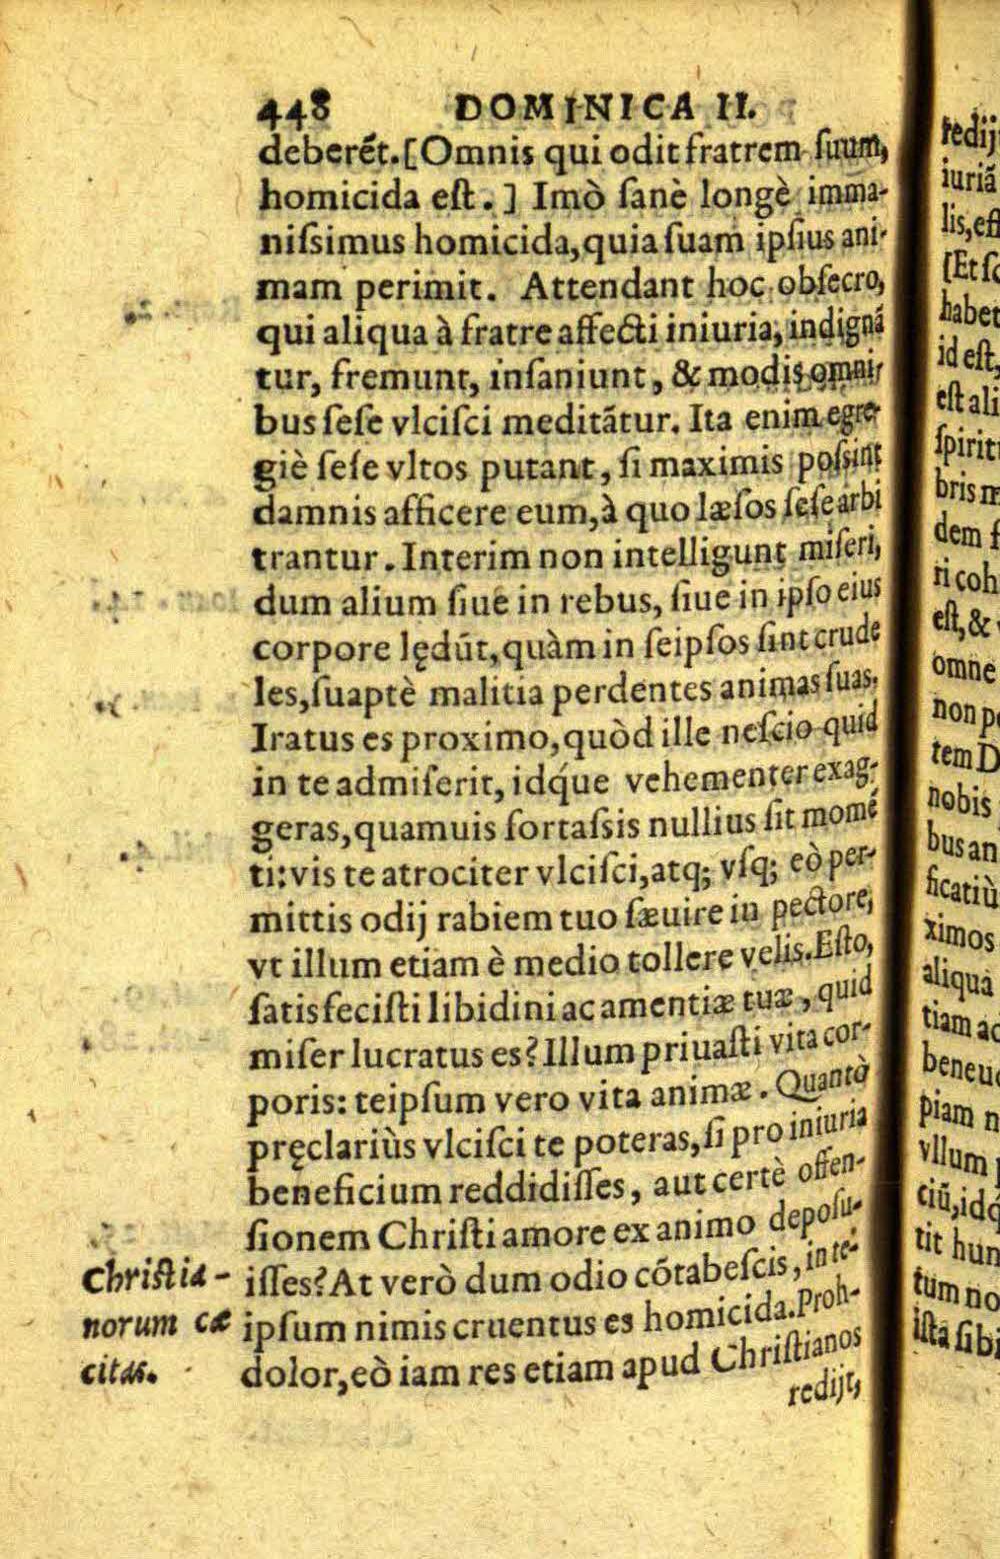 448 DOMINICA II.
deberẽt.[Omnis qui odit fratrem suum,
homicida eſt.] Imò ſanè longè imma-
niſsimus homicida,quia ſuam ipſius ani-
mam perimit. Attendant hoc obſecro,
qui aliqua à fratre affecti iniuria, indignã
tur, fremunt, inſaniunt, & modis omni-
bus ſeſe vlciſci meditãtur. Ita enim egre-
giè ſeſe vltos putant, ſi maximis poſsint
damnis afficere eum,à quo læſos ſeſe arbi
trantur. Interim non intelligunt miſeri,
dum alium ſiue in rebus, ſiue in ipſo eius
corpore lędũt,quàm in ſeipſos ſint crude
les,ſuaptè malitia perdentes animas ſuas.
Iratus es proximo,quòd ille neſcio quid
in te admiſerit, idq́ue vehementer exag-
geras,quamuis fortaſsis nullius ſit momẽ
ti:vis te atrociter vlciſci,atq; vſq; eò per-
mittis odij rabiem tuo ſæuire in pectore,
vt illum etiam è medio tollere velis.Eſto,
ſatisfeciſti libidini ac amentiæ tuæ, quid
miſer lucratus es? Illum priuaſti vita cor-
poris: teipſum vero vita animæ. Quantò
pręclariùs vlciſci te poteras,ſi pro iniuria
beneficium reddidiſſes, aut certè offen-
ſionem Chriſti amore ex animo depoſu-
iſſes? At verò dum odio cõtabeſcis, in te-
ipſum nimis cruentus es homicida.Proh-
dolor,eò iam res etiam apud Chriſtianos
redijt,
Chriſtia-
norum cæ
citas.
redij
iuriã
lis,eſt
[Et ſc
habet
id eſt,
eſt ali
ſpirit
bris m
dem f
ri coh
eſt, &
omne
non p
tem D
nobis
bus an
ficatiù
ximos
aliqua
tiam ac
beneu
piam n
vllum
ciũ,idq
tit hun
tum no
iſta ſibi